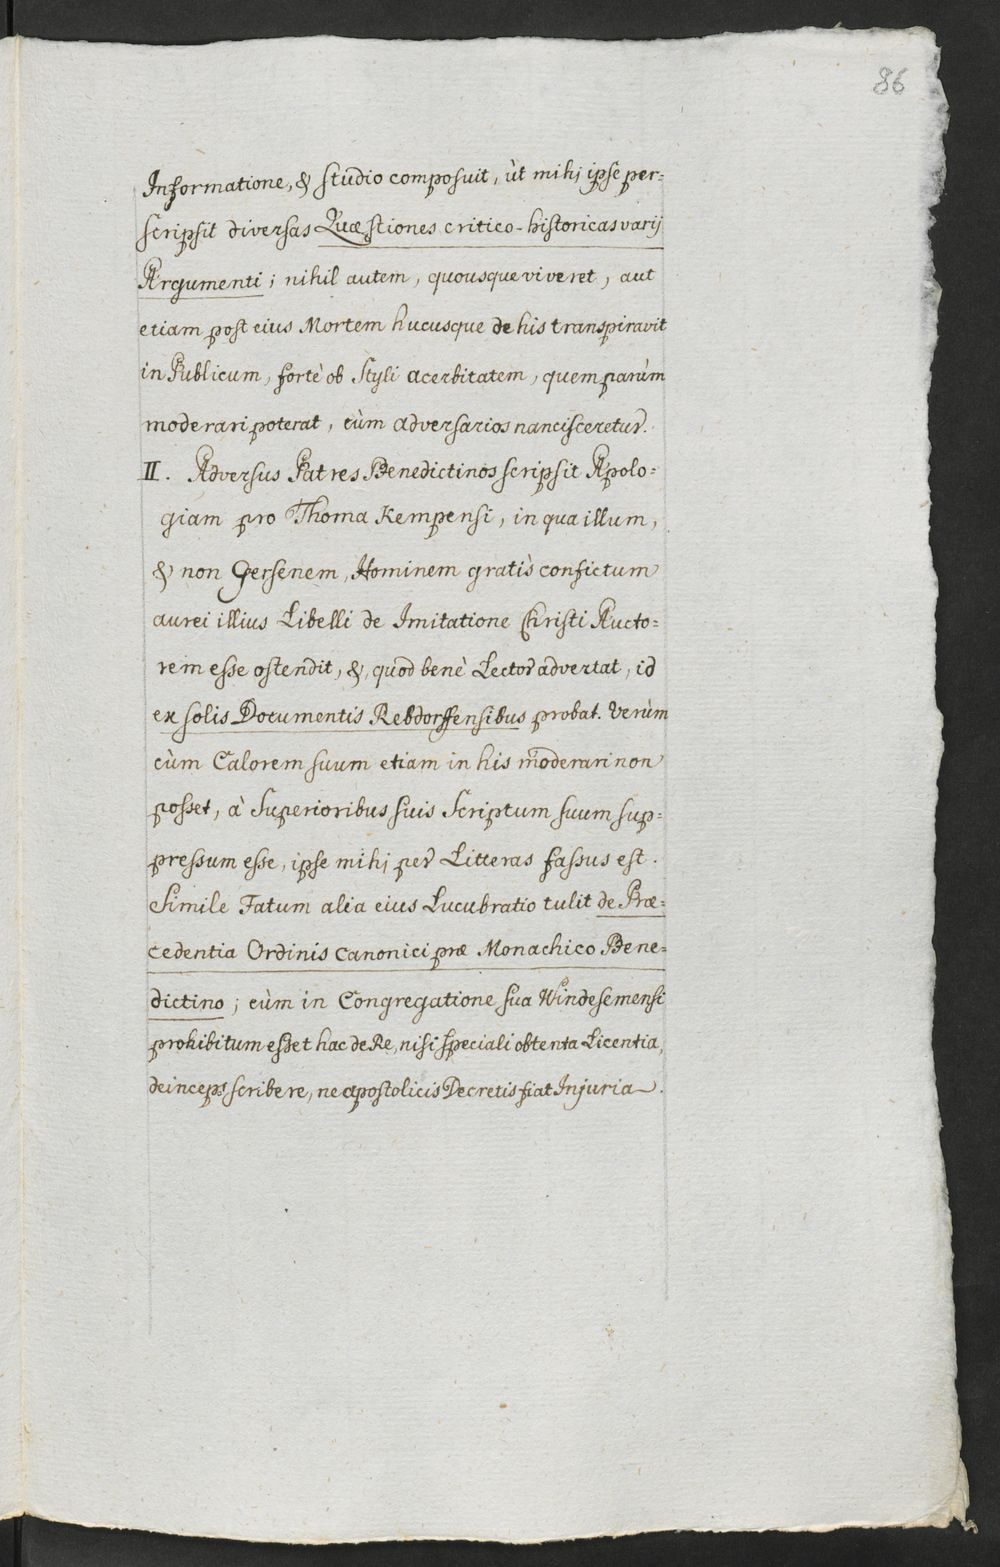 86
Informatione, & studio composuit, ùt mihj ipse per=
scripsit diversas Quæstiones critico-historicas varij
Argumenti; nihil autem, quousque viveret, aut
etiam post eius Mortem hucusque de his transpiravit
in Publicum, fortè ob Styli acerbitatem, quem parùm
moderari poterat, cùm adversarios nancisceretur.
II. Adversus Patres Benedictinos scripsit Apolo=
giam pro Thoma Kempensi, in qua illum,
& non Gersenem, Hominem gratis confictum
aurei illius Libelli de Imitatione Christi Aucto=
rem esse ostendit, &, quod benè Lector advertat, id
ex solis Documentis Rebdorffensibus probat. Verùm
cùm Calorem suum etiam in his moderari non
posset, à Superioribus suis Scriptum suum sup=
pressum esse, ipse mihj per Litteras fassus est.
Simile Fatum alia eius Lucubratio tulit de Præ=
cedentia Ordinis Canonici præ Monachico Bene=
dictino; cùm in Congregatione sua Windesemensi
prohibitum esset hac de Re, nisi speciali obtenta Licentia,
deinceps scribere, ne apostolicis Decretis fiat Injuria.